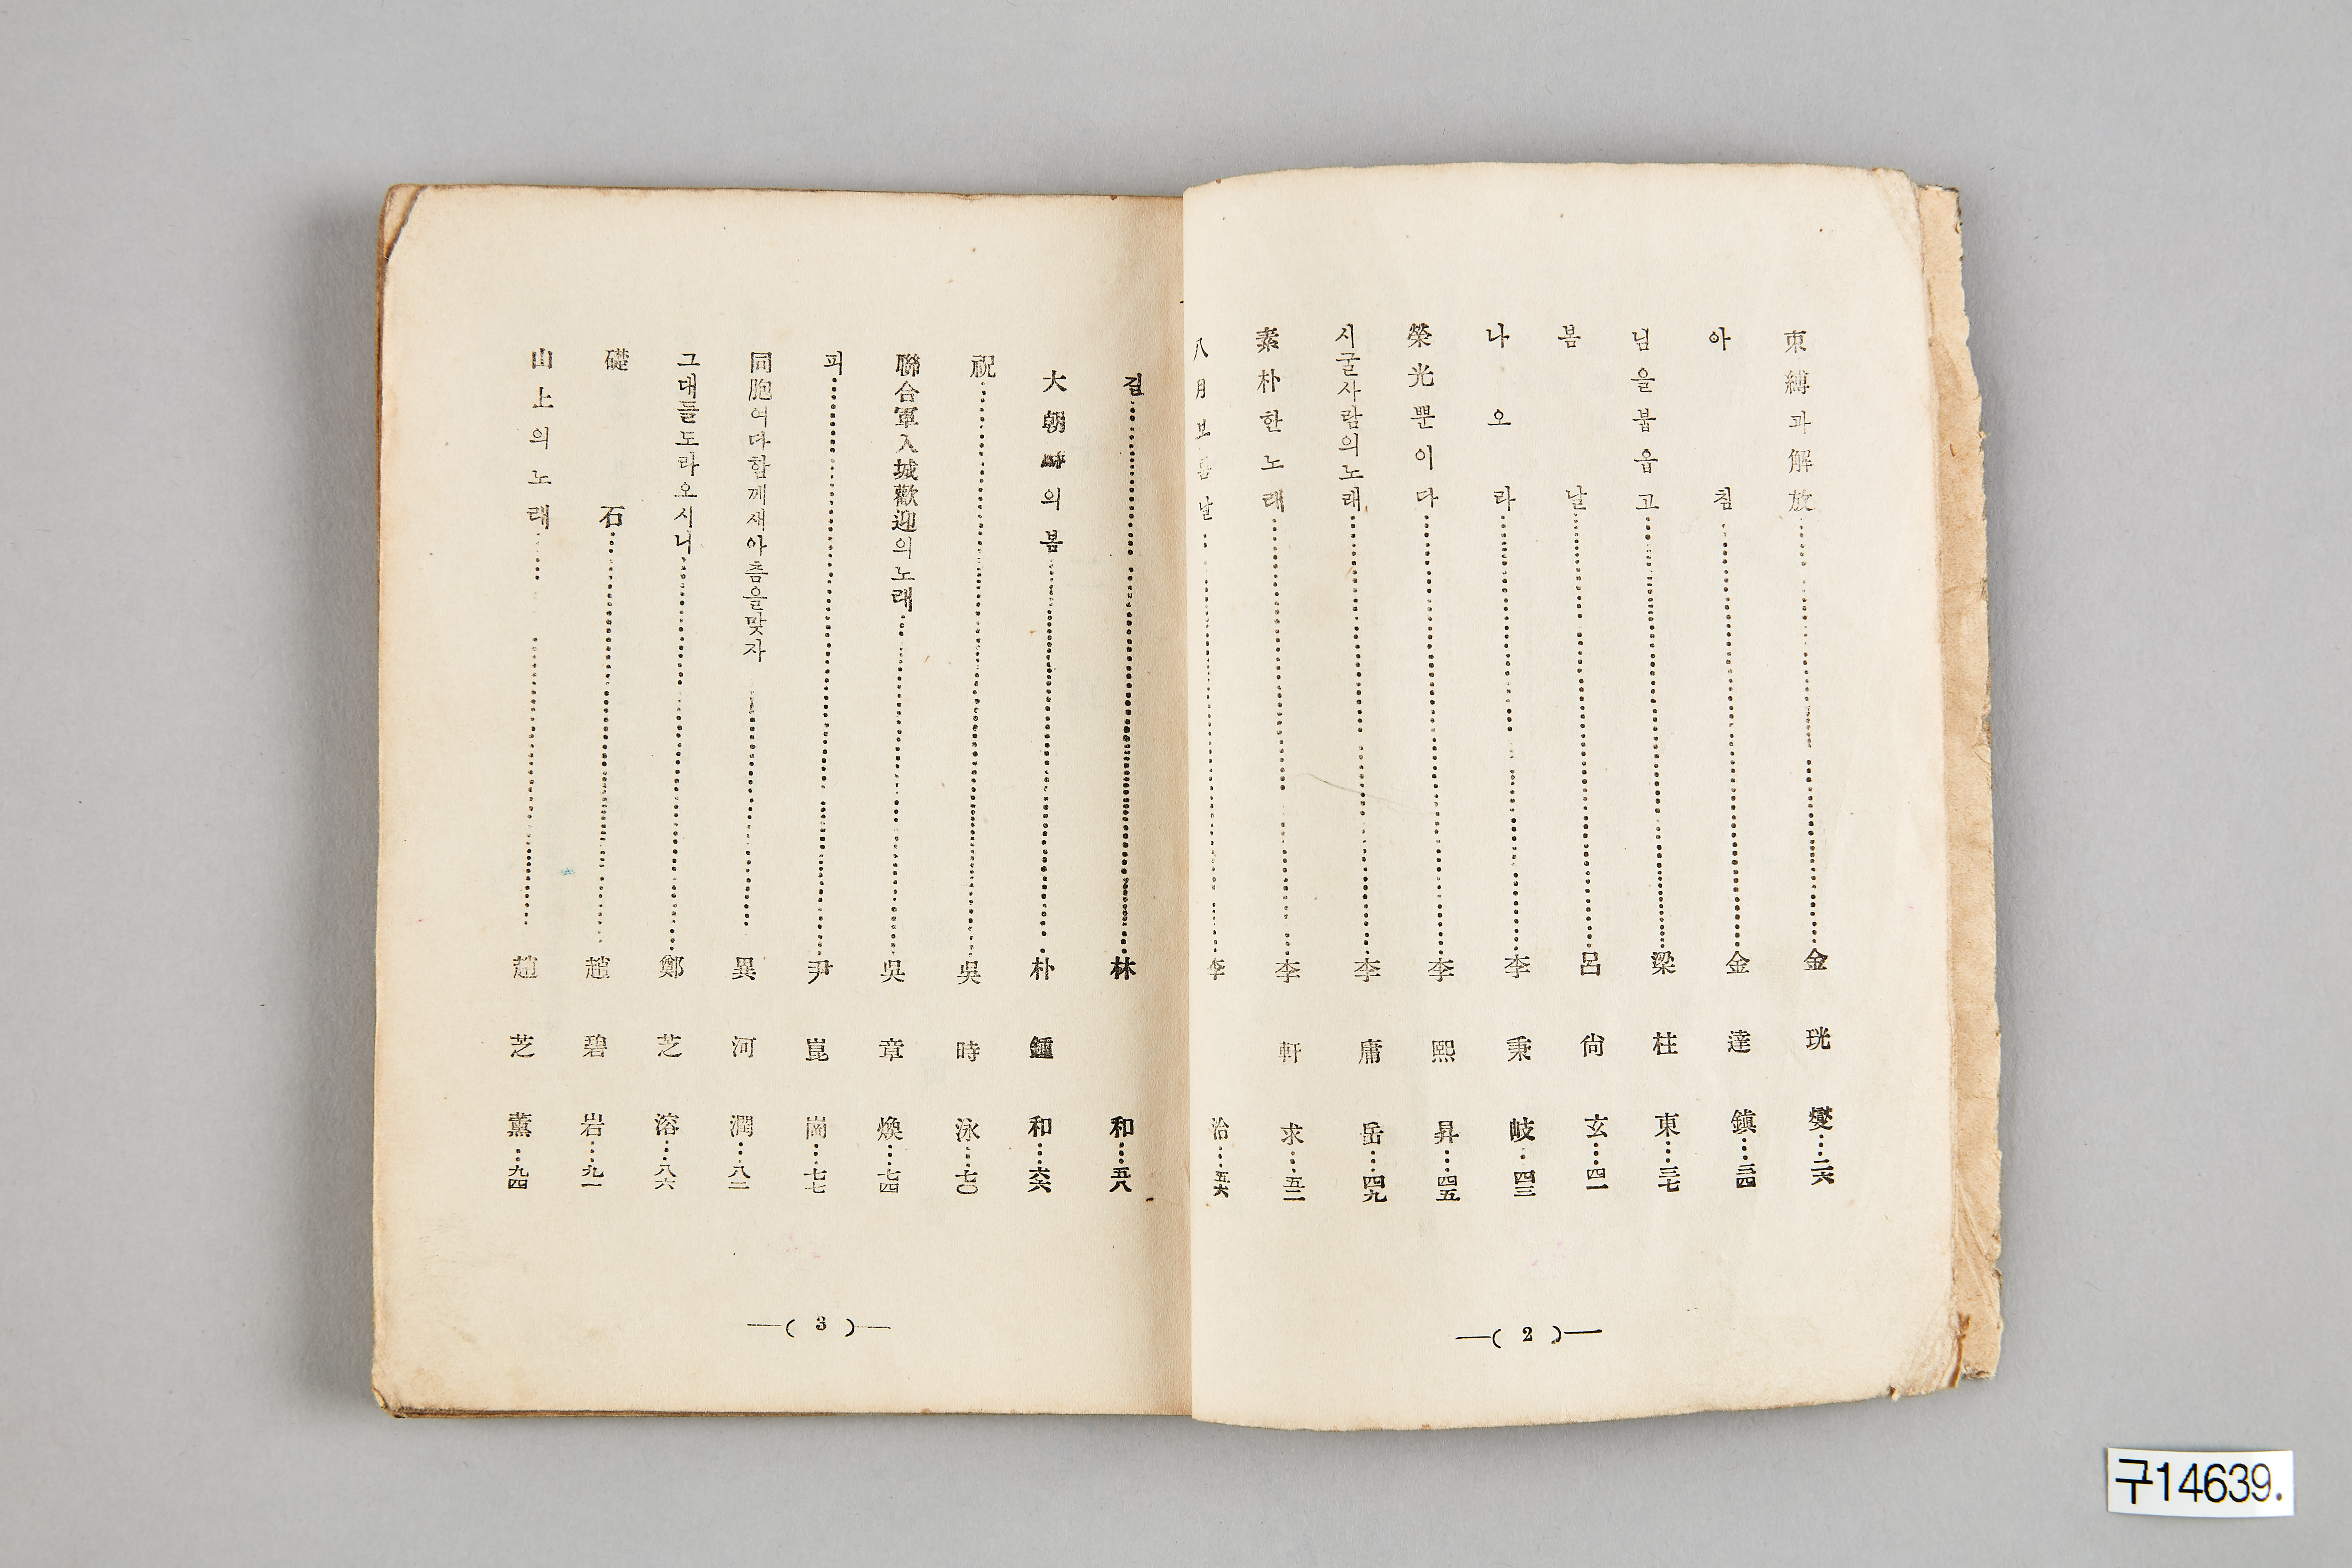 束縛과解放……金珖燮…二六
아침……金達鎭…三四
님을봅옵고……梁柱東…三七
봄날……呂尙玄…四一
나오라……李秉岐…四三
榮光뿐이다……李熙昇…四五
시굴사람의노래……李庸岳…四九
素朴한노래……李軒求…五二
八月보름날……李治…五六
—( 2 )—
길……林和…五八
大朝鮮의봄……朴鍾和…六六
祝……吳時泳…七〇
聯合軍入城歡迎의노래……吳章煥…七四
피……尹崑崗…七七
同胞여다함께새아츰을맞자……異河潤…八二
그대들도라오시니……鄭芝溶…八六
礎石……趙碧岩…九一
山上의노래……趙芝薰…九四
—( 3 )—
구14639.